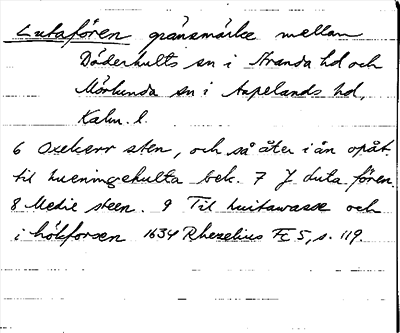 Lutafören gränsmärke mellan
Döderhults sn i Stranda hd och
Mörlunda sn i Aspelands hd,
Kalm. l.
6 oxekerr sten, och så åter i ån opåt
til hueningehulta bek. 7 J luta fören.
8 Medie steen. 9 Til huitawasse och
i hökforsen 1634 Rhezelius Fc 5, s. 119.